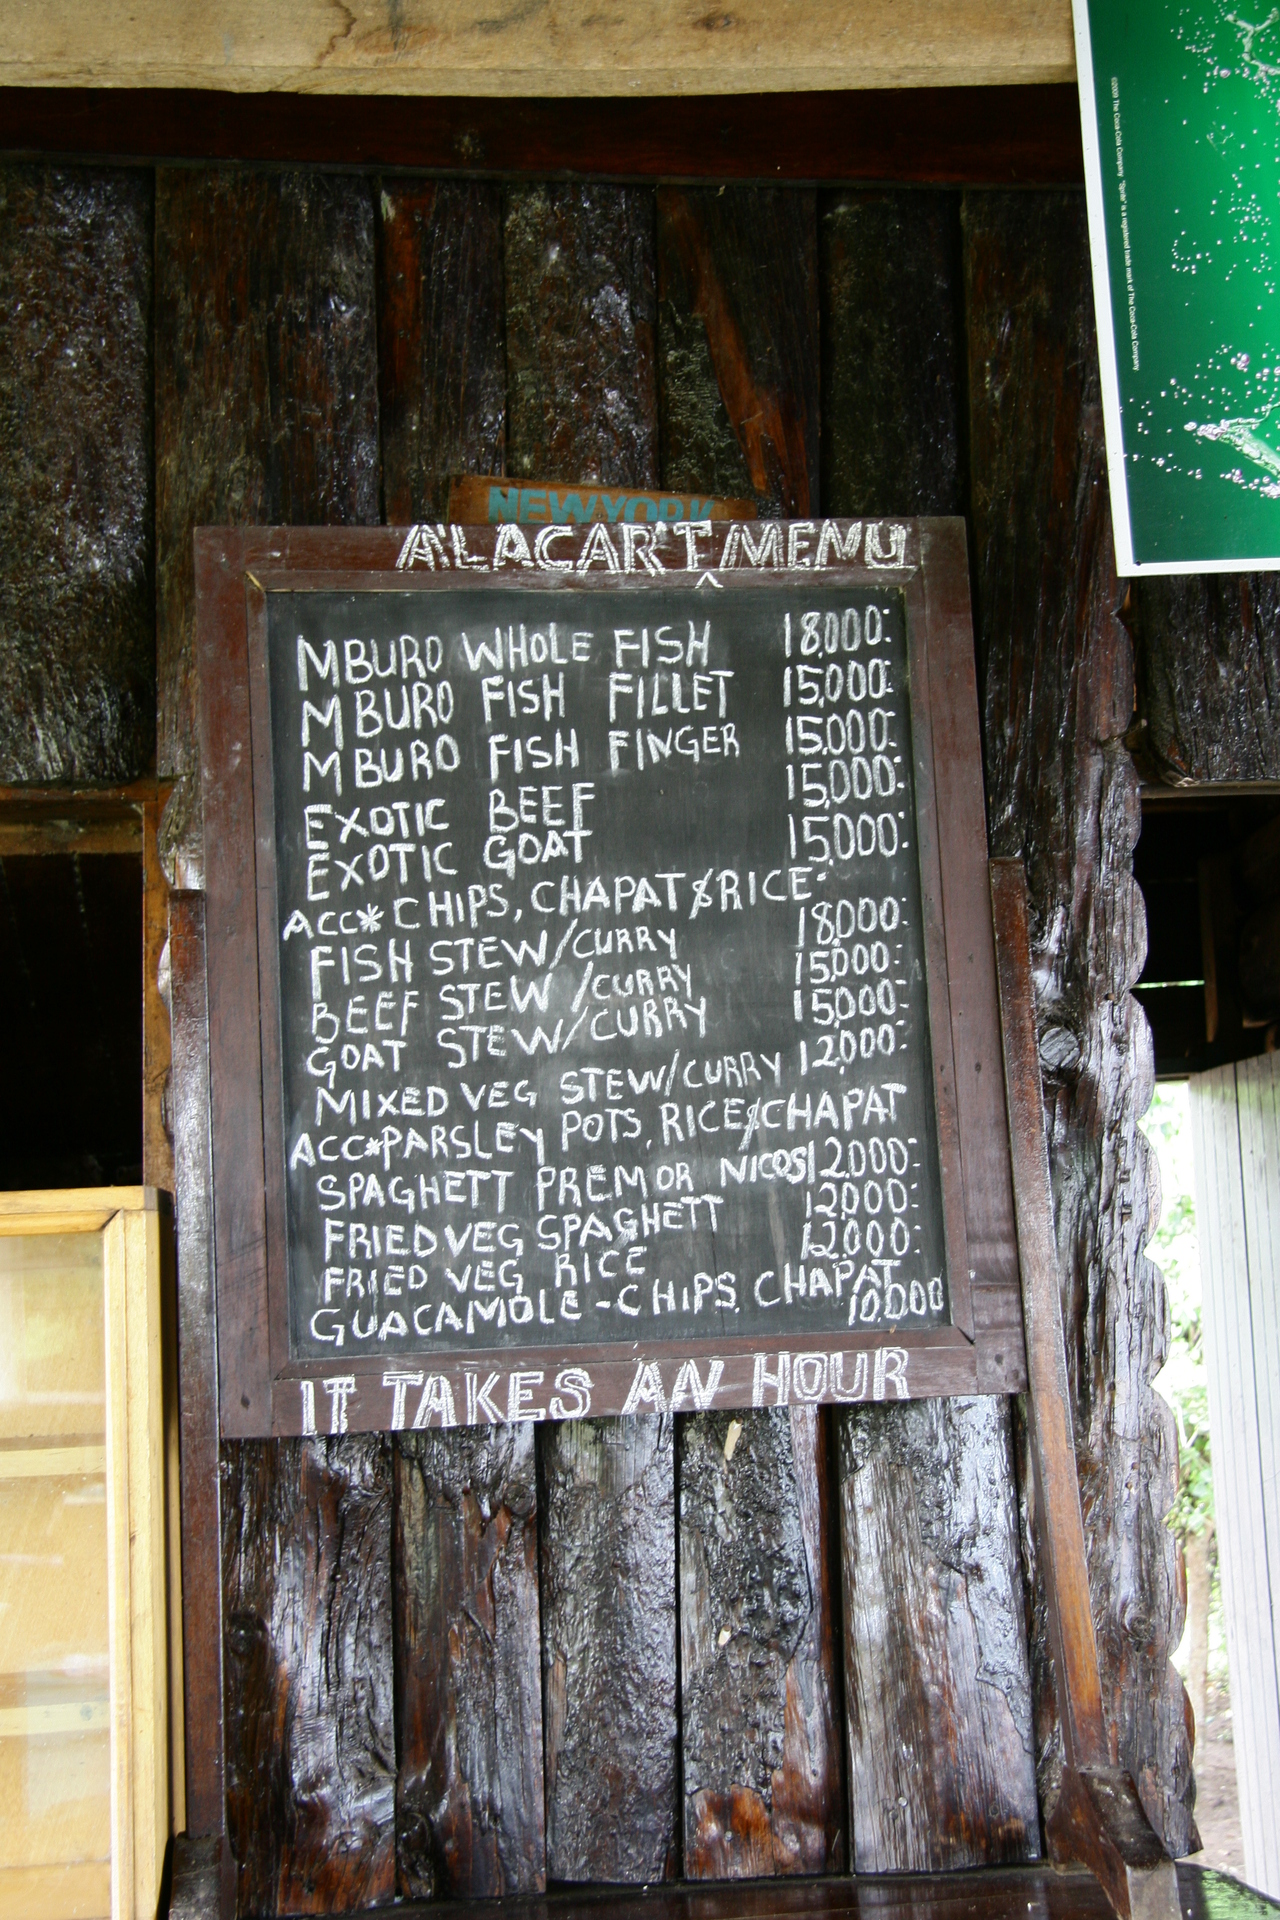 ©2009 The Coca-Cola Company. "Sprite" is a registered trade mark of The Coca-Cola Company
NEWYORK
A'LACAR'T MENU
MBURO WHOLE FISH 18,000:
MBURO FISH FILLET 15,000:
MBURO FISH FINGER 15,000:
EXOTIC BEEF 15,000:
EXOTIC GOAT 15,000:
ACC* CHIPS, CHAPAT & RICE
FISH STEW/CURRY 18,000:
BEEF STEW /CURRY 15,000:
GOAT STEW/CURRY 15,000:
MIXED VEG STEW/CURRY 12,000:
ACC*PARSLEY POTS, RICE & CHAPAT
SPAGHETT PREM OR NICOS 12,000:
FRIED VEG SPAGHETT 12,000:
FRIED VEG RICE 12,000:
GUACAMOLE - CHIPS, CHAPAT
10,000
IT TAKES AN HOUR